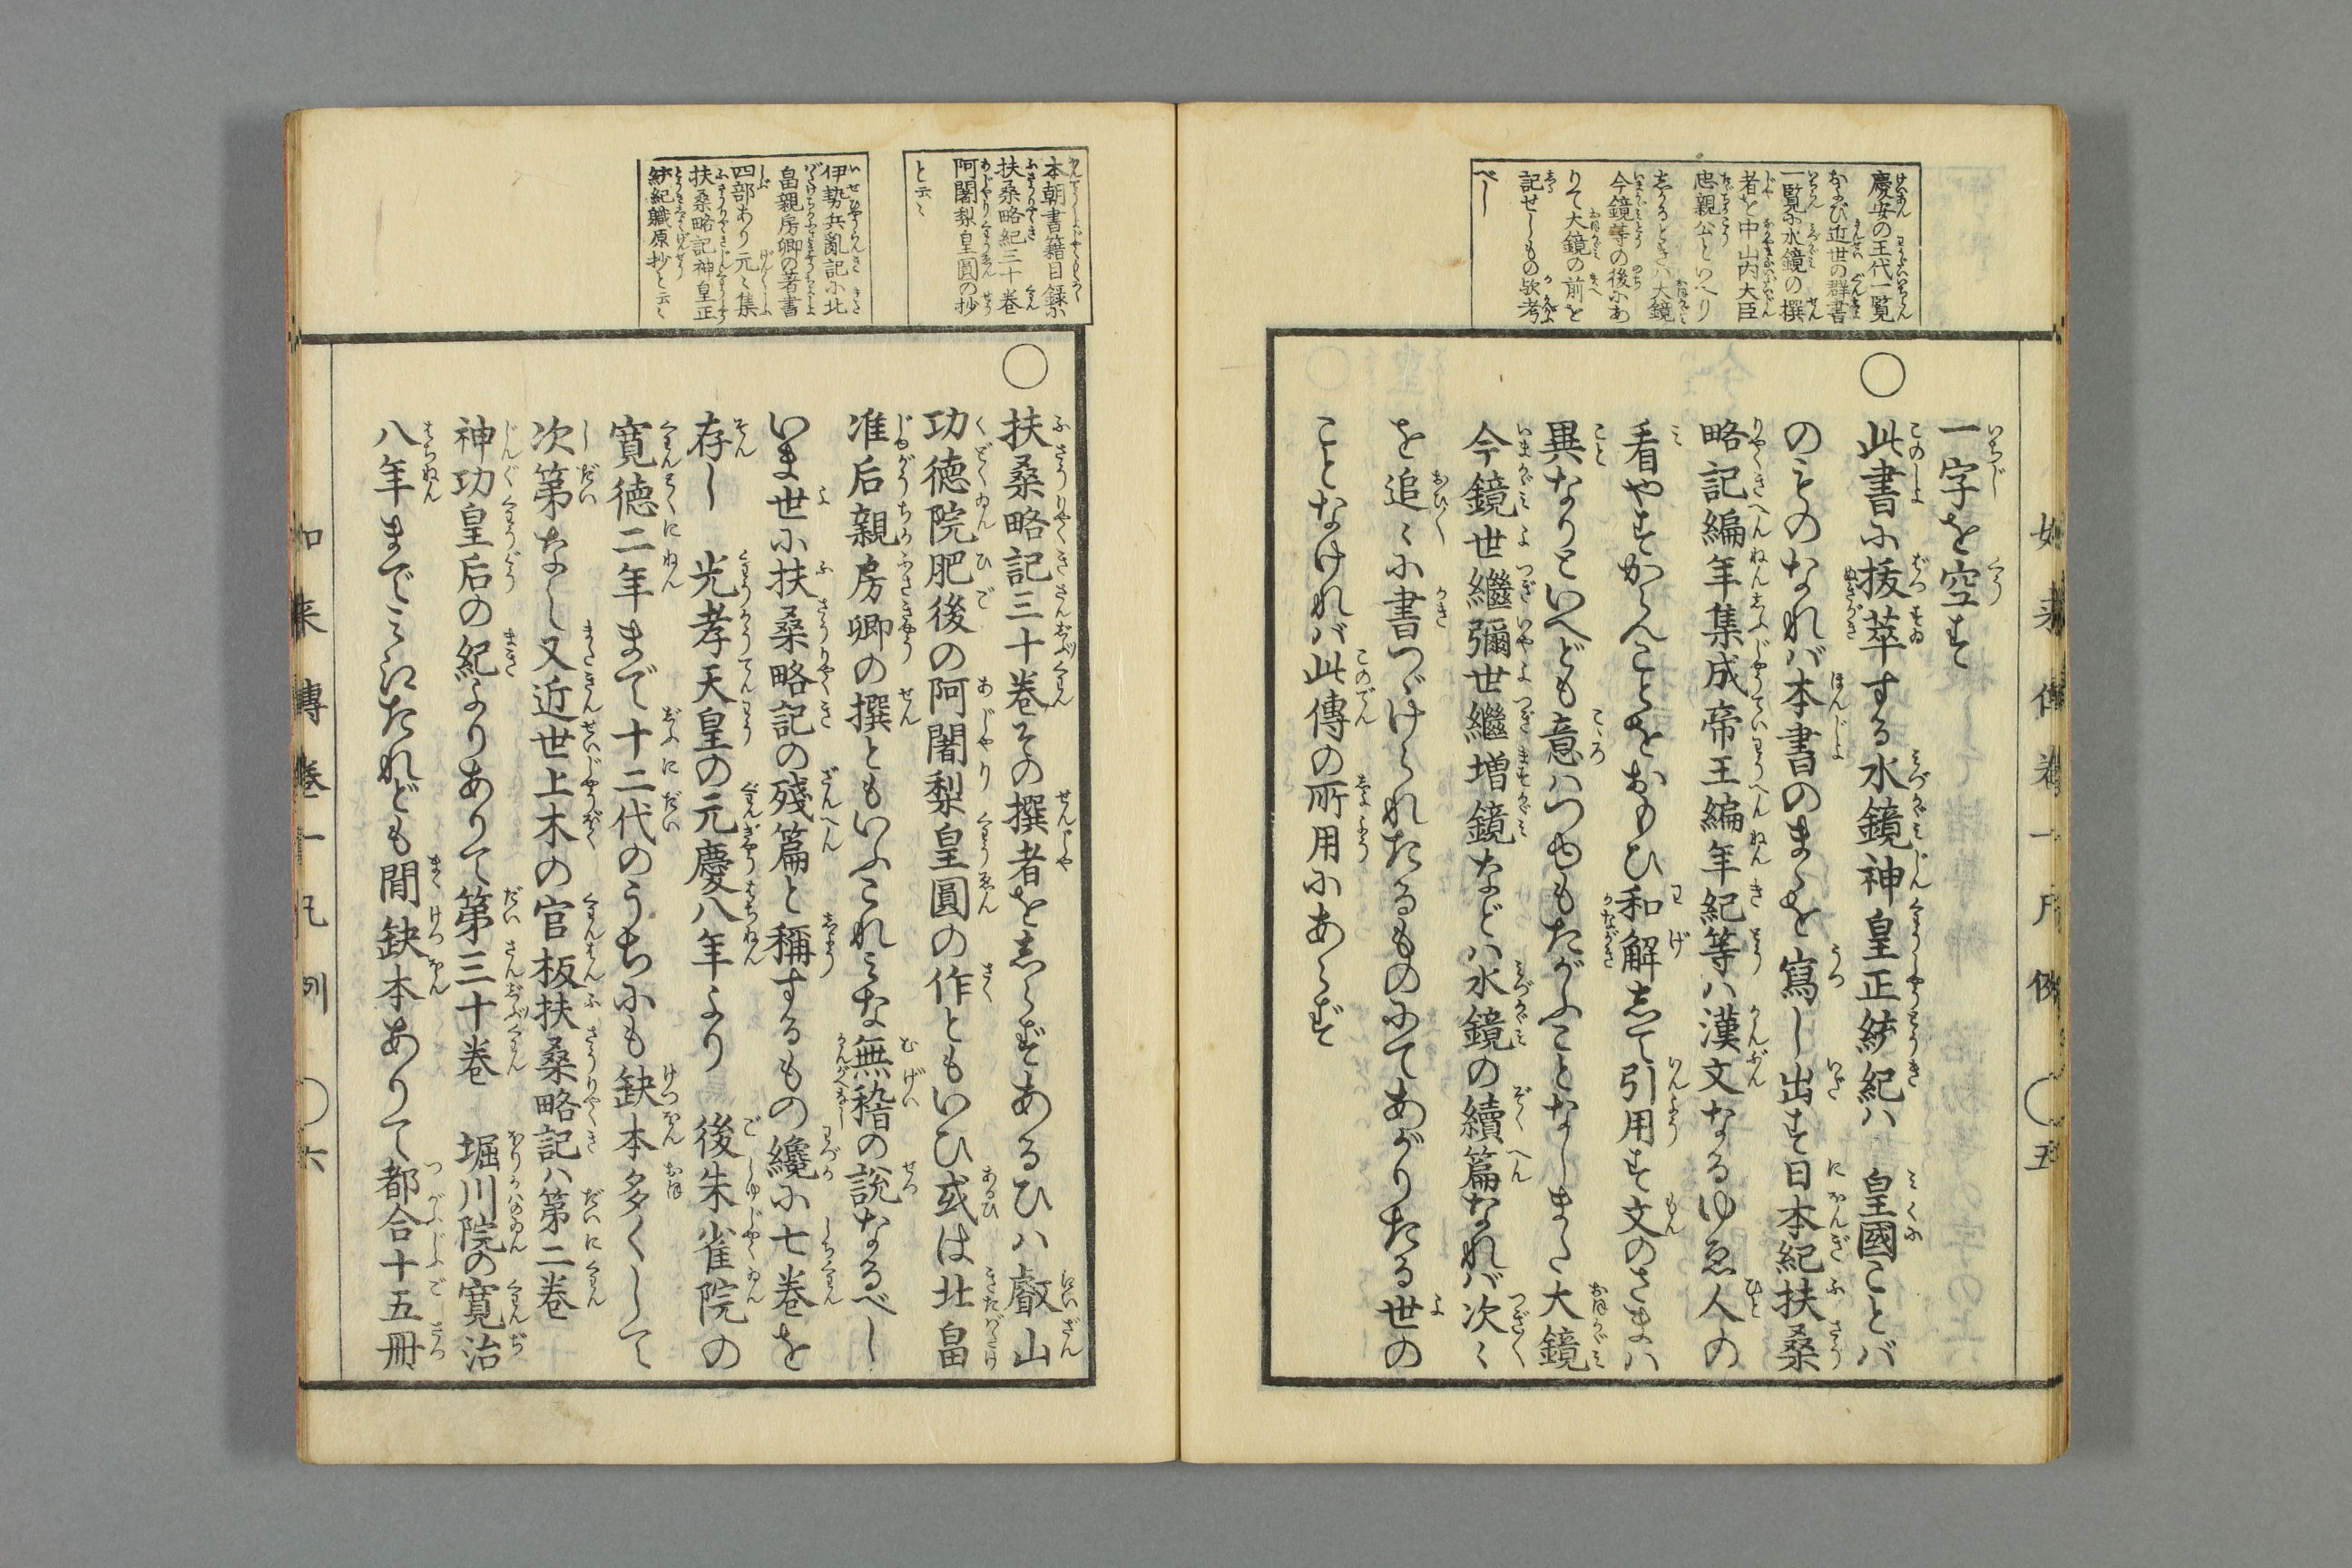 慶安の王代一覧
および近世の群書
一覧に水鏡の撰
者を中山内大臣
忠親公といへり
しかるときハ大鏡
今鏡等の後にあ
りて大鏡の前を
記せしもの歟考
べし
一字を空す
○此書に抜萃する水鏡神皇正統紀ハ　皇國ことバ
のものなれバ本書のまゝを寫し出す日本紀扶桑
略記編年集成帝王編年紀等ハ漢文なるゆゑ人の
看やすからんことをおもひ和解して引用す文のさまハ
異なりといへども意ハつゆもたがふことなしまた大鏡
今鏡世繼彌世繼増鏡などハ水鏡の續篇なれバ次〻
を追〻に書つゞけられたるものにてあがりたる世の
ことなけれバ此傳の所用にあらず
本朝書籍目録に
扶桑略紀三十巻
阿闍梨皇圓の抄
と云〻
伊勢兵亂記に北
畠親房卿の著書
四部あり元〻集
扶桑略記神皇正
統紀職原抄と云〻
○扶桑略記三十巻その撰者をしらずあるひハ叡山
功徳院肥後の阿闍梨皇圓の作ともいひ或は北畠
准后親房卿の撰ともいふこれみな無稽の説なるべし
いま世に扶桑略記の殘篇と稱するもの纔に七巻を
存し　光孝天皇の元慶八年より　後朱雀院の
寛徳二年まで十二代のうちにも缺本多くして
次第なし又近世上木の官板扶桑略記ハ第二巻
神功皇后の紀よりありて第三十巻　堀川院の寛治
八年までミえたれども間缺本ありて都合十五冊
如来傳巻一凡例　○六